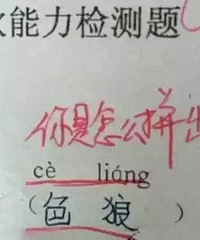 能力检测题
你是怎么拼出
cè liáng
（色 狼 ）